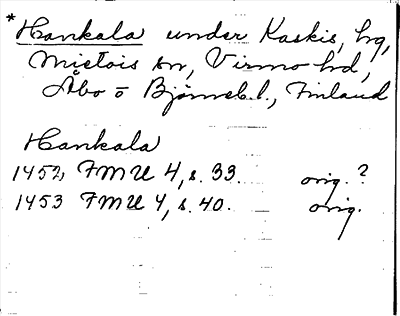 *Hankala under Kaskis, hg,
Mietois sn, Virmo hd,
Åbo o Björneb.l., Finland
Hankala
1452 FMU 4, s. 33. orig.?
1453 FMU 4, s. 40. orig.